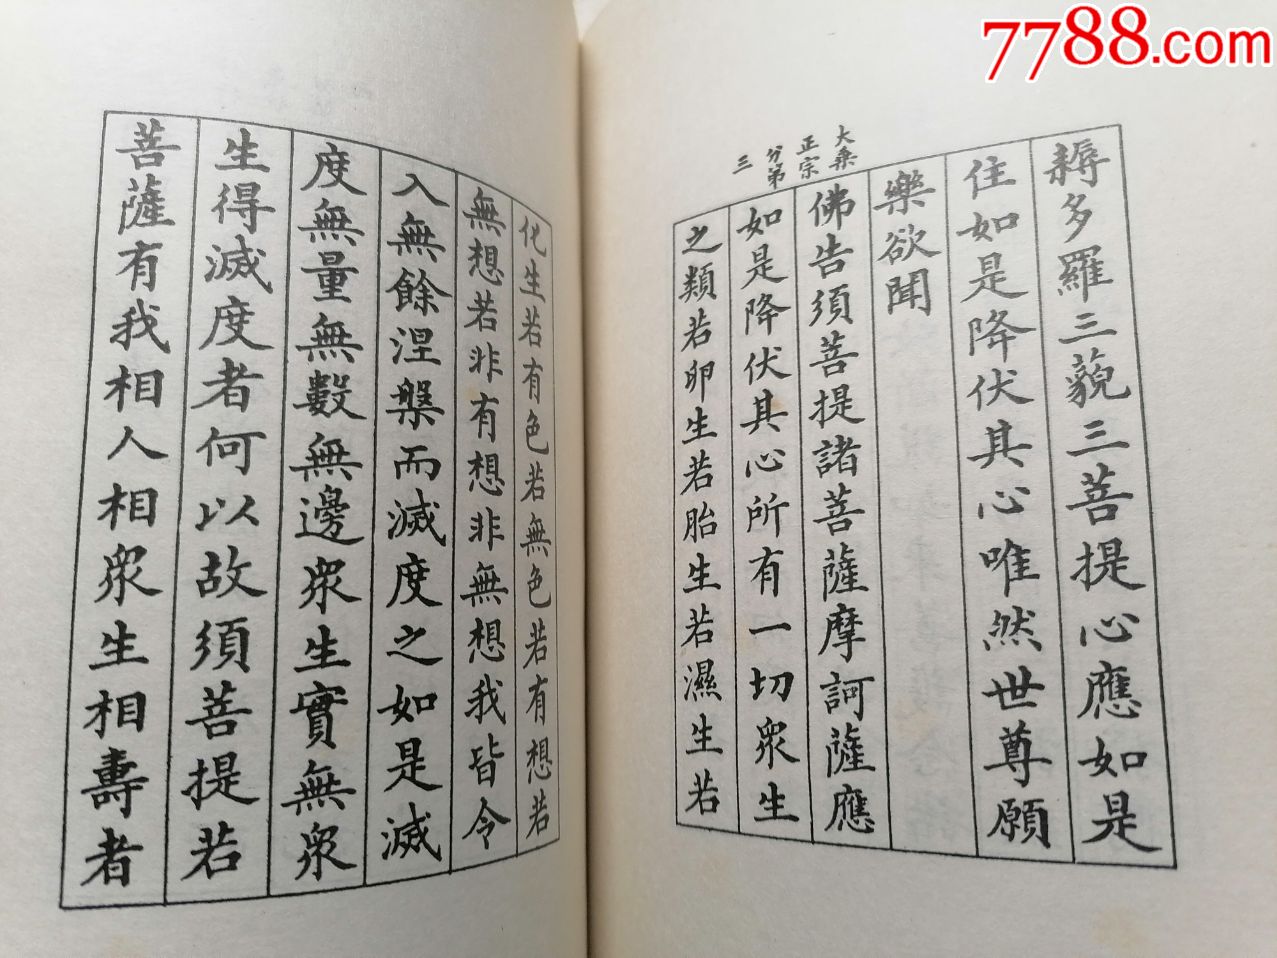 7788.com
耨多羅三藐三菩提心應如是
住如是降伏其心唯然世尊願
樂欲聞
大乘
正宗
分第
三
佛告須菩提諸菩薩摩訶薩應
如是降伏其心所有一切眾生
之類若卵生若胎生若濕生若
化生若有色若無色若有想若
無想若非有想非無想我皆令
入無餘涅槃而滅度之如是滅
度無量無數無邊眾生實無眾
生得滅度者何以故須菩提若
菩薩有我相人相眾生相壽者